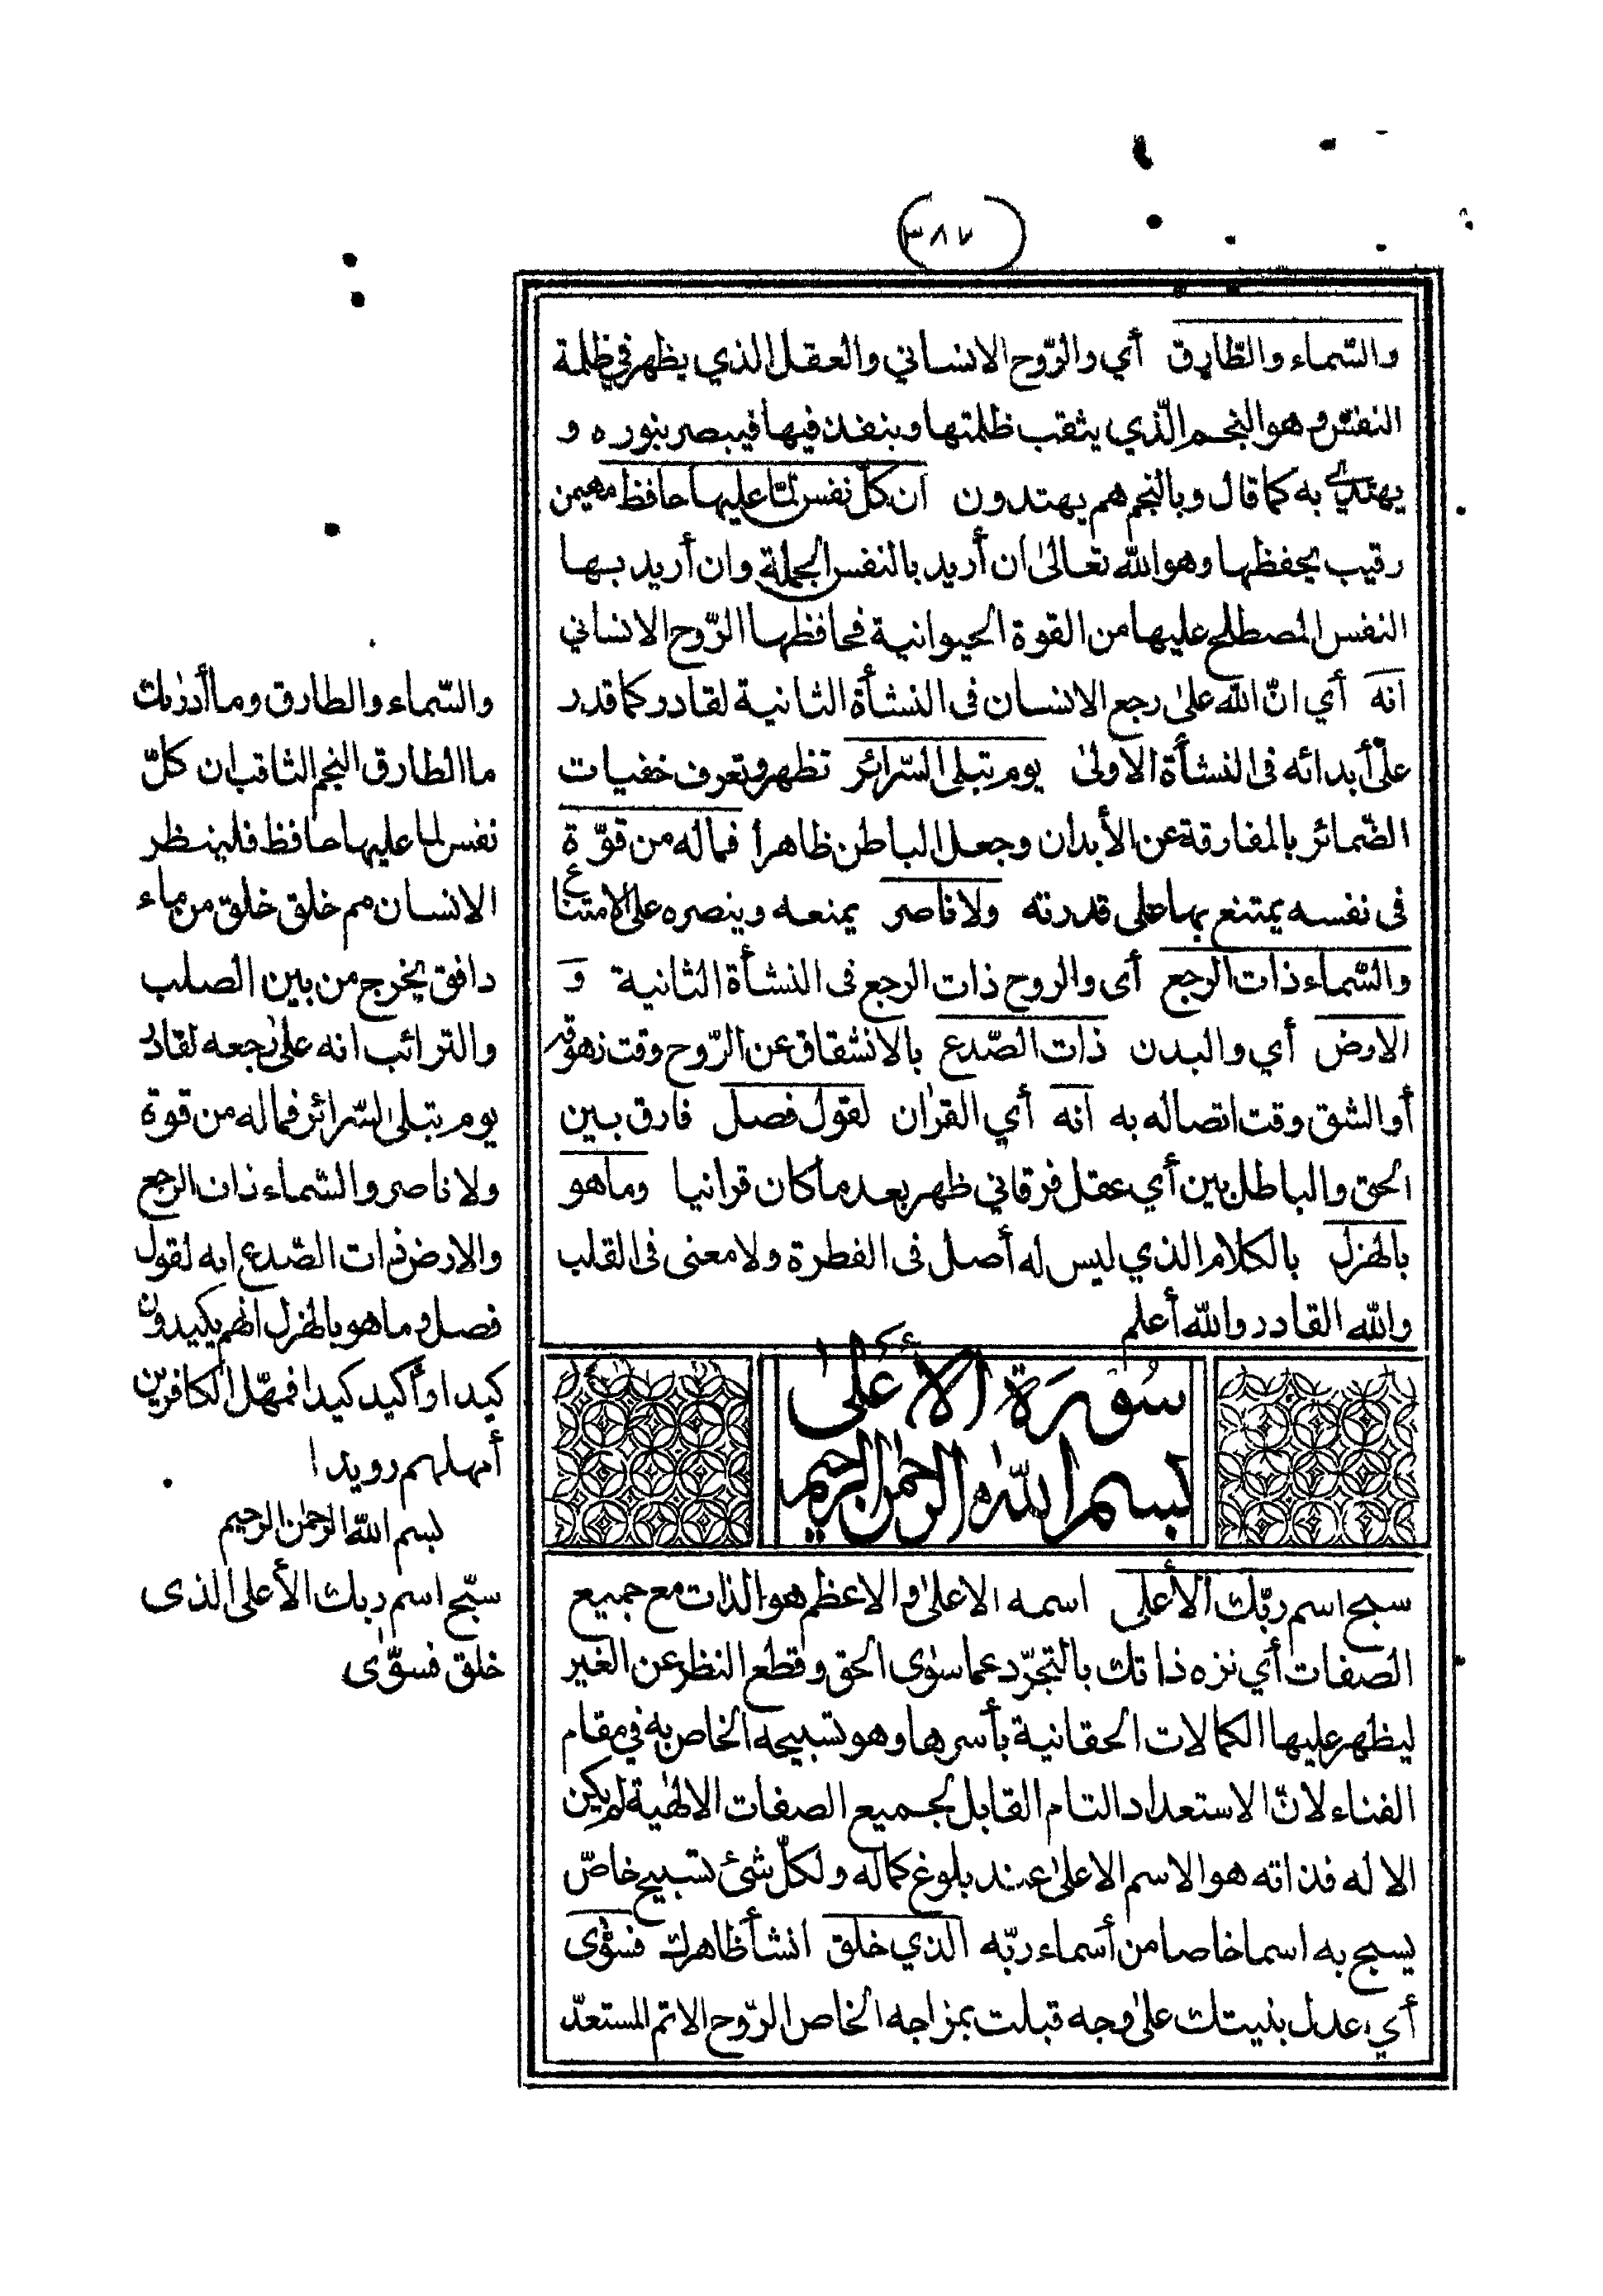 (٣٨٧)
والسّماء والطّارق أي والرّوح الانساني والعقل الذي يظهر في ظلمة
النفس وهو النجم الّذي يثقب ظلمتها وينفذ فيها فيبصر بنوره و
يهتدي به كما قال وبالنجم هم يهتدون ان كلّ نفس لمّا عليها حافظ مهيمن
رقيب يحفظها وهو الله تعالىٰ ان أريد بالنفس الجملة وان أريد بها
النفس المصطلح عليها من القوة الحيوانية فحافظها الرّوح الانساني
انه أي انّ الله علىٰ رجع الانسان فى النشأة الثانية لقادر كما قدر
على أبدائه فى النشأة الاولىٰ يوم تبلى السّرائر تظهر وتعرف خفيات
الضّمائر بالمفارقة عن الأبدان وجعل الباطن ظاهرا فماله من قوّة
فى نفسه يمتنع بها على قدرته ولا ناصر يمنعه وينصره على الامتناع
والسّماء ذات الرجع أى والروح ذات الرجع فى النشأة الثانية و
الارض أي والبدن ذات الصّدع بالانشقاق عن الرّوح وقت زهوقه
أو الشق وقت اتصاله به انه أي القرٰان لقول فصل فارق بين
الحق والباطل بين أي عقل فرقاني ظهر بعد ما كان قرانيا وماهو
بالهزل بالكلام الذي ليس له أصل فى الفطرة ولا معنى فى القلب
والله القادر والله أعلم
سُورَة الأعلىٰ
بسم الله الرحمٰن الرحيم
سبح اسم ربّك الأعلى اسمه الاعلىٰ والاعظم هو الذات مع جميع
الصفات أي نزه ذاتك بالتجرّد عما سوٰى الحق وقطع النظر عن الغير
ليظهر عليها الكمالات الحقانية بأسرها وهو تسبيحه الخاص به في مقام
الفناء لانّ الاستعداد التام القابل لجميع الصفات الالهٰية لم يكن
الا له فذاته هو الاسم الاعلىٰ عند بلوغ كماله ولكلّ شئ تسبيح خاصّ
يسبح به اسما خاصا من أسماء ربّه الذي خلق انشأ ظاهرك فسوّٰى
أي عدل بنيتك علىٰ وجه قبلت بمزاجه الخاص الرّوح الاتم المستعدّ
والسّماء والطارق وما أدرٰىك
ما الطارق النجم الثاقب ان كلّ
نفس لما عليها حافظ فلينظر
الانسان مم خلق خلق من ماء
دافق يخرج من بين الصلب
والترائب انه علىٰ رجعه لقادر
يوم تبلىٰ السّرائر فماله من قوة
ولا ناصر والسّماء ذات الرجع
والارض ذات الصّدع انه لقول
فصل وما هو بالهزل انهم يكيدون
كيدا وأكيد كيدا فمهّل الكافرين
أمهلهم رويدا
بسم الله الرحمٰن الرحيم
سبّح اسم ربك الأعلى الذى
خلق فسوّٰى